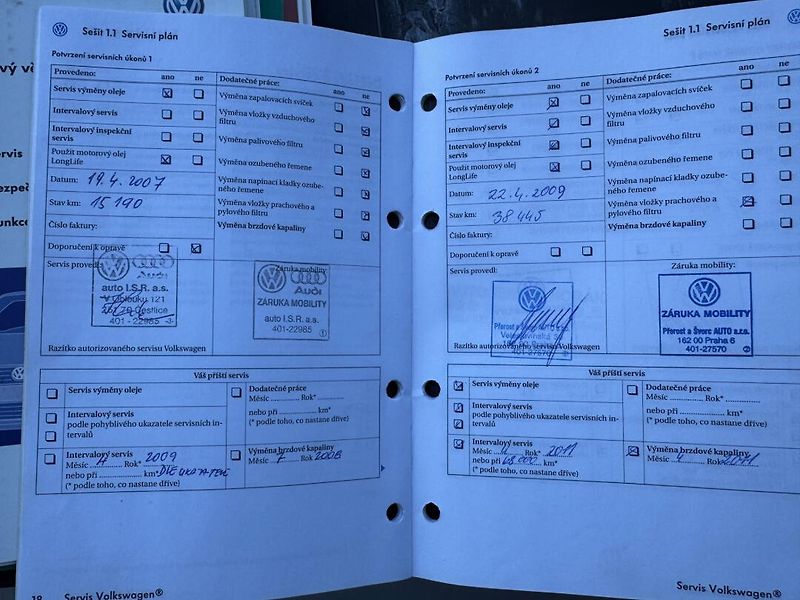 ový vů
ervis
bezpeč
Funkce
Sešit 1.1 Servisní plán
Potvrzení servisních úkonů 1
Provedeno: ano ne
Servis výměny oleje
Intervalový servis
Intervalový inspekční
servis
Použit motorový olej
LongLife
Datum: 19.4.2007
Stav km: 15 190
Číslo faktury:
Doporučení k opravě
Dodatečné práce: ano ne
Výměna zapalovacích svíček
Výměna vložky vzduchového
filtru
Výměna palivového filtru
Výměna ozubeného řemene
Výměna napínací kladky ozube-
ného řemene
Výměna vložky prachového a
pylového filtru
Výměna brzdové kapaliny
Servis provedl:
Audi
auto I.S.R. a.s.
V Oblouku 121
Čestlice
401-22985
Záruka mobility
Audi
ZÁRUKA MOBILITY
auto I.S.R. a.s.
401-22985
Razítko autorizovaného servisu Volkswagen
Váš příští servis
Servis výměny oleje
Intervalový servis
podle pohyblivého ukazatele servisních in-
tervalů
Intervalový servis
Měsíc .......... Rok* 2009
nebo při .......... km*
(* podle toho, co nastane dříve)
Dodatečné práce
Měsíc .......... Rok* ..........
nebo při .......... km*
(* podle toho, co nastane dříve)
Výměna brzdové kapaliny
Měsíc .......... Rok 2008
18 Servis Volkswagen®
Sešit 1.1 Servisní plán
Potvrzení servisních úkonů 2
Provedeno: ano ne
Servis výměny oleje
Intervalový servis
Intervalový inspekční
servis
Použit motorový olej
LongLife
Datum: 22.4.2009
Stav km: 38 445
Číslo faktury:
Doporučení k opravě
Dodatečné práce: ano ne
Výměna zapalovacích svíček
Výměna vložky vzduchového
filtru
Výměna palivového filtru
Výměna ozubeného řemene
Výměna napínací kladky ozube-
ného řemene
Výměna vložky prachového a
pylového filtru
Výměna brzdové kapaliny
Servis provedl:
Přerost a Švorc AUTO
Razítko autorizovaného servisu Volkswagen
Záruka mobility:
ZÁRUKA MOBILITY
Přerost a Švorc AUTO s.r.o.
162 00 Praha 6
401-27570 2
Váš příští servis
Servis výměny oleje
Intervalový servis
podle pohyblivého ukazatele servisních in-
tervalů
Intervalový servis
Měsíc .......... Rok* 2011
nebo při 68 000 km*
(* podle toho, co nastane dříve)
Dodatečné práce
Měsíc .......... Rok* ..........
nebo při .......... km*
(* podle toho, co nastane dříve)
Výměna brzdové kapaliny
Měsíc 4 Rok 2011
Servis Volkswagen®